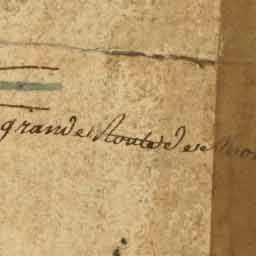 grande Route de